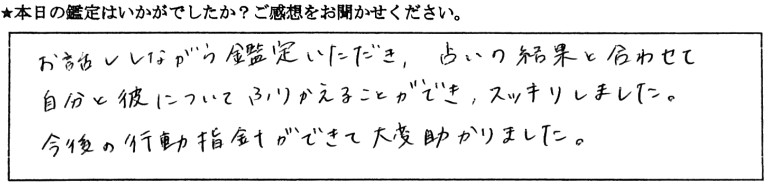 ★本日の鑑定はいかがでしたか？ご感想をお聞かせください。
お話ししながら鑑定いただき、占いの結果と合わせて
自分と彼についてふりかえることができ、スッキリしました。
今後の行動指針ができて大変助かりました。